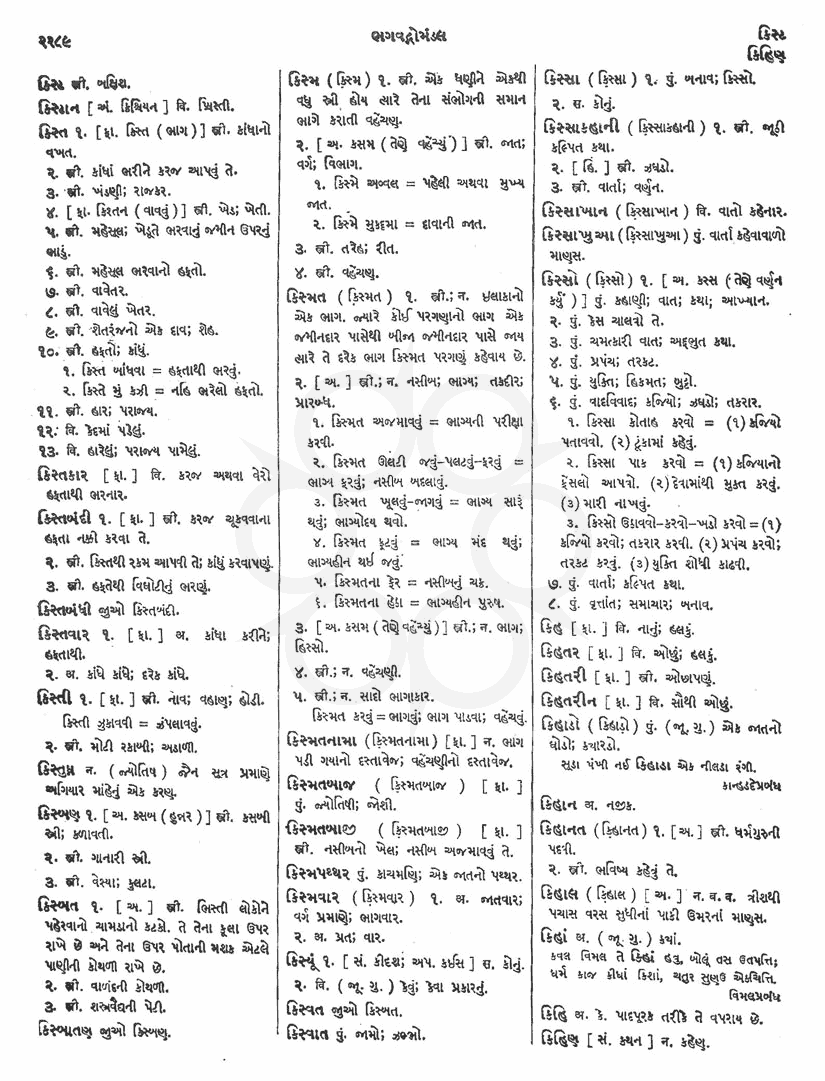 ૨૨૮૯
ભગવદ્ગોમંડલ
કિસ્ટ
કિહિણ
કિસ્ટ સ્ત્રી. બક્ષિશ.
કિસ્ટાન [ અં. ક્રિશ્ચિયન ] વિ. ખ્રિસ્તી.
કિસ્ત ૧. [ ફા. કિસ્ત ( ભાગ ) ] સ્ત્રી. કાંધાનો
વખત.
૨. સ્ત્રી. કાંધાં ભરીને કરજ આપવું તે.
૩. સ્ત્રી. ખંડણી; રાજકર.
૪. [ ફા. કિશ્તન ( વાવવું ) ] સ્ત્રી. ખેડ; ખેતી.
૫. સ્ત્રી. મહેસૂલ; ખેડૂતે ભરવાનું જમીન ઉપરનું
ભાડું.
૬. સ્ત્રી. મહેસૂલ ભરવાનો હફતો.
૭. સ્ત્રી. વાવેતર.
૮. સ્ત્રી. વાવેલું ખેતર.
૯. સ્ત્રી. શેતરંજનો એક દાવ; શેહ.
૧૦. સ્ત્રી. હફતો; કાંધું.
૧. કિસ્ત બાંધવા = હફતાથી ભરવું.
૨. કિસ્તે મું કઝી = નહિ ભરેલો હફતો.
૧૧. સ્ત્રી. હાર; પરાજય.
૧૨. વિ. કેદમાં પડેલું.
૧૩. વિ. હારેલું; પરાજય પામેલું.
કિસ્તકાર [ ફા. ] વિ. કરજ અથવા વેરો
હફતાથી ભરનાર.
કિસ્તબંદી ૧. [ ફા. ] સ્ત્રી. કરજ ચૂકવવાના
હફતા નક્કી કરવા તે.
૨. સ્ત્રી. કિસ્તથી રકમ આપવી તે; કાંધું કરવાપણું.
૩. સ્ત્રી. હફતેથી વિઘોટીનું ભરણું.
કિસ્તબંધી જુઓ કિસ્તબંદી.
કિસ્તવાર ૧. [ ફા. ] અ. કાંધા કરીને;
હફતાથી.
૨. અ. કાંધે કાંધે; દરેક કાંધે.
કિસ્તી ૧. [ ફા. ] સ્ત્રી. નાવ; વહાણ; હોડી.
કિસ્તી ઝુકાવવી = ઝંપલાવવું.
૨. સ્ત્રી. મોટી રકાબી; અડાળી.
કિસ્તુઘ્ન ન. ( જ્યોતિષ ) જૈન સૂત્ર પ્રમાણે
અગિયાર માંહેનું એક કરણ.
કિસ્બણ ૧. [ અ. કસબ ( હુન્નર ) ] સ્ત્રી. કસબી
સ્ત્રી; કળાવતી.
૨. સ્ત્રી. ગાનારી સ્ત્રી.
૩. સ્ત્રી. વેશ્યા; કુલટા.
કિસ્બત ૧. [ અ. ] સ્ત્રી. ભિસ્તી લોકોને
પહેરવાનો ચામડાનો કટકો. તે તેના કૂલા ઉપર
રાખે છે અને તેના ઉપર પોતાની મશક એટલે
પાણીની કોથળી રાખે છે.
૨. સ્ત્રી. વાળંદની કોથળી.
૩. સ્ત્રી. શસ્ત્રવૈદ્યની પેટી.
કિસ્બાતણ જુઓ કિસ્બણ.
કિસ્મ ( કિ઼સ્મ ) ૧. સ્ત્રી. એક ધણીને એકથી
વધુ સ્ત્રી હોય ત્યારે તેના સંભોગની સમાન
ભાગે કરાતી વહેંચણ.
૨. [ અ. કસમ ( તેણે વહેંચ્યું ) ] સ્ત્રી. જાત;
વર્ગ; વિભાગ.
૧. કિસ્મે અવ્વલ = પહેલી અથવા મુખ્ય
જાત.
૨. કિસ્મે મુકદ્દમા = દાવાની જાત.
૩. સ્ત્રી. તરેહ; રીત.
૪. સ્ત્રી. વહેંચણ.
કિસ્મત ( કિ઼સ્મત ) ૧. સ્ત્રી.; ન. ઇલાકાનો
એક ભાગ. જ્યારે કોઈ પરગણાનો ભાગ એક
જમીનદાર પાસેથી બીજા જમીનદાર પાસે જાય
ત્યારે તે દરેક ભાગ કિસ્મત પરગણું કહેવાય છે.
૨. [ અ. ] સ્ત્રી.; ન. નસીબ; ભાગ્ય; તકદીર;
પ્રારબ્ધ.
૧. કિસ્મત અજમાવવું = ભાગ્યની પરીક્ષા
કરવી.
૨. કિસ્મત ઊલટી જવું-પલટવું-ફરવું =
ભાગ્ય ફરવું; નસીબ બદલાવું.
૩. કિસ્મત ખૂલવું-જાગવું = ભાગ્ય સારું
થવું; ભાગ્યોદય થવો.
૪. કિસ્મત ફૂટવું = ભાગ્ય મંદ થવું;
ભાગ્યહીન થઈ જવું.
૫. કિસ્મતના ફેર = નસીબનું ચક્ર.
૬. કિસ્મતના હેઠા = ભાગ્યહીન પુરુષ.
૩. [ અ. કસમ ( તેણે વહેંચ્યું ) ] સ્ત્રી.; ન. ભાગ;
હિસ્સો.
૪. સ્ત્રી.; ન. વહેંચણી.
૫. સ્ત્રી.; ન. સાદો ભાગાકાર.
કિસ્મત કરવું = ભાગવું; ભાગ પાડવા; વહેંચવું.
કિસ્મતનામા ( કિ઼સ્મતનામા ) [ ફા. ] ન. ભાગ
પડી ગયાનો દસ્તાવેજ; વહેંચણીનો દસ્તાવેજ.
કિસ્મતબાજ ( કિ઼સ્મતબાજ ) [ ફા. ]
પું. જ્યોતિષી; જોશી.
કિસ્મતબાજી ( કિ઼સ્મતબાજી ) [ ફા. ]
સ્ત્રી. નસીબનો ખેલ; નસીબ અજમાવવું તે.
કિસ્મપથ્થર પું. કાચમણિ; એક જાતનો પથ્થર.
કિસ્મવાર ( કિ઼સ્મવાર ) ૧. અ. જાતવાર;
વર્ગ પ્રમાણે; ભાગવાર.
૨. અ. પ્રત; વાર.
કિસ્યૂં ૧. [ સં. કીદશ; અપ. કઇસિ ] સ. કોનું.
૨. વિ. ( જૂ. ગુ. ) કેવું; કેવા પ્રકારનું.
કિસ્વત જુઓ કિસ્બત.
કિસ્વાત પું. જામો; ઝભ્ભો.
કિસ્સા ( કિ઼સ્સા ) ૧. પું. બનાવ; કિસ્સો.
૨. સ. કોનું.
કિસ્સાકહાની ( કિ઼સ્સાકહાની ) ૧. સ્ત્રી. જૂઠી
કલ્પિત કથા.
૨. [ હિં. ] સ્ત્રી. ઝઘડો.
૩. સ્ત્રી. વાર્તા; વર્ણન.
કિસ્સાખાન ( કિ઼સ્સાખાન ) વિ. વાતો કહેનાર.
કિસ્સાખુઆ ( કિ઼સ્સાખુઆ ) પું. વાર્તા કહેવાવાળો
માણસ.
કિસ્સો ( કિ઼સ્સો ) ૧. [ અ. કસ્સ ( તેણે વર્ણન
કર્યું ) ] પું. કહાણી; વાત; કથા; આખ્યાન.
૨. પું. કેસ ચાલવો તે.
૩. પું. ચમત્કારી વાત; અદ્ભુત કથા.
૪. પું. પ્રપંચ; તરકટ.
૫. પું. યુક્તિ; હિકમત; બુટ્ટો.
૬. પું. વાદવિવાદ; કજિયો; ઝઘડો; તકરાર.
૧. કિસ્સા કોતાહ કરવો = (૧) કજિયો
પતાવવો. (૨) ટૂંકામાં કહેવું.
૨. કિસ્સા પાક કરવો = (૧) કજિયાનો
ફેંસલો આપવો. (૨) દેવામાંથી મુક્ત કરવું.
(૩) મારી નાખવું.
૩. કિસ્સો ઉઠાવવો-કરવો-ખડો કરવો = (૧)
કજિયો કરવો; તકરાર કરવી. (૨) પ્રપંચ કરવો;
તરકટ કરવું. (૩) યુક્તિ શોધી કાઢવી.
૭. પું. વાર્તા; કલ્પિત કથા.
૮. પું. વૃત્તાંત; સમાચાર; બનાવ.
કિહ [ ફા. ] વિ. નાનું; હલકું.
કિહતર [ ફા. ] વિ. ઓછું; હલકું.
કિહતરી [ ફા. ] સ્ત્રી. ઓછાપણું.
કિહતરીન [ ફા. ] વિ. સૌથી ઓછું.
કિહાડો ( કિહાડ઼ો ) પું. ( જૂ. ગુ. ) એક જાતનો
ઘોડો; કયારડો.
સૂડા પંખી નઈ કિહાડા એક નીલડા રંગી.
કાન્હડદેપ્રબંધ
કિહાન અ. નજીક.
કિહાનત ( કિ઼હાનત ) ૧. [ અ. ] સ્ત્રી. ધર્મગુરુની
પદવી.
૨. સ્ત્રી. ભવિષ્ય કહેવું તે.
કિહાલ ( કિ઼હાલ ) [ અ. ] ન. બ. વ. ત્રીશથી
પચાસ વરસ સુધીનાં પાકી ઉમરનાં માણસ.
કિહાં અ. ( જૂ. ગુ. ) ક્યાં.
કવલ વિમલ તે કિહાં હવુ, બોલૂં તસ ઉતપત્તિ;
ધર્મ કાજ કીધાં કિશાં, ચતુર સુણુઉ એકચિત્તિ.
વિમલપ્રબંધ
કિહિ અ. કે. પાદપૂરક તરીકે તે વપરાય છે.
કિહિણ [ સં. કથન ] ન. કહેણ.